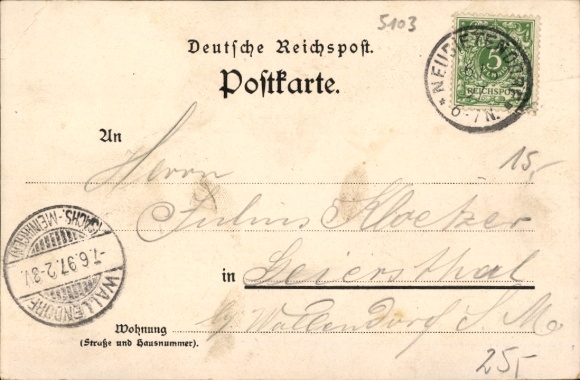 5103
Deutsche Reichspost.
Postkarte.
5
REICHSPOST
NEUDIETENDORF
* 6-7N. *
An
Herrn
15,-
Julius Kloetzer
in Geiersthal
b/ Wallendorf S. M.
Wohnung
(Straße und Hausnummer).
25,-
(SACHS.-MEININGEN)
-7.6.97.2-3V.
WALLENDORF